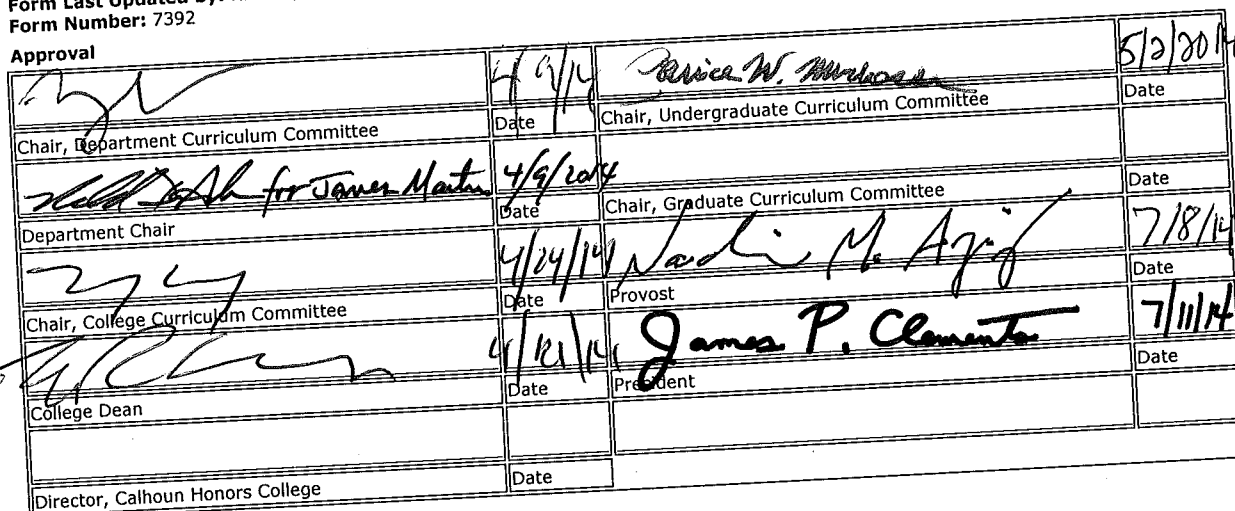 Form Last Updated by:
Form Number: 7392
Approval
4/9/14 Janice W. Murdoch 5/2/2014
Chair, Department Curriculum Committee Date Chair, Undergraduate Curriculum Committee Date
for James Martin 4/9/2014
Department Chair Date Chair, Graduate Curriculum Committee Date
4/24/14 M. Aziz 7/8/14
Chair, College Curriculum Committee Date Provost Date
James P. Clements 7/11/14
College Dean Date President Date
Director, Calhoun Honors College Date